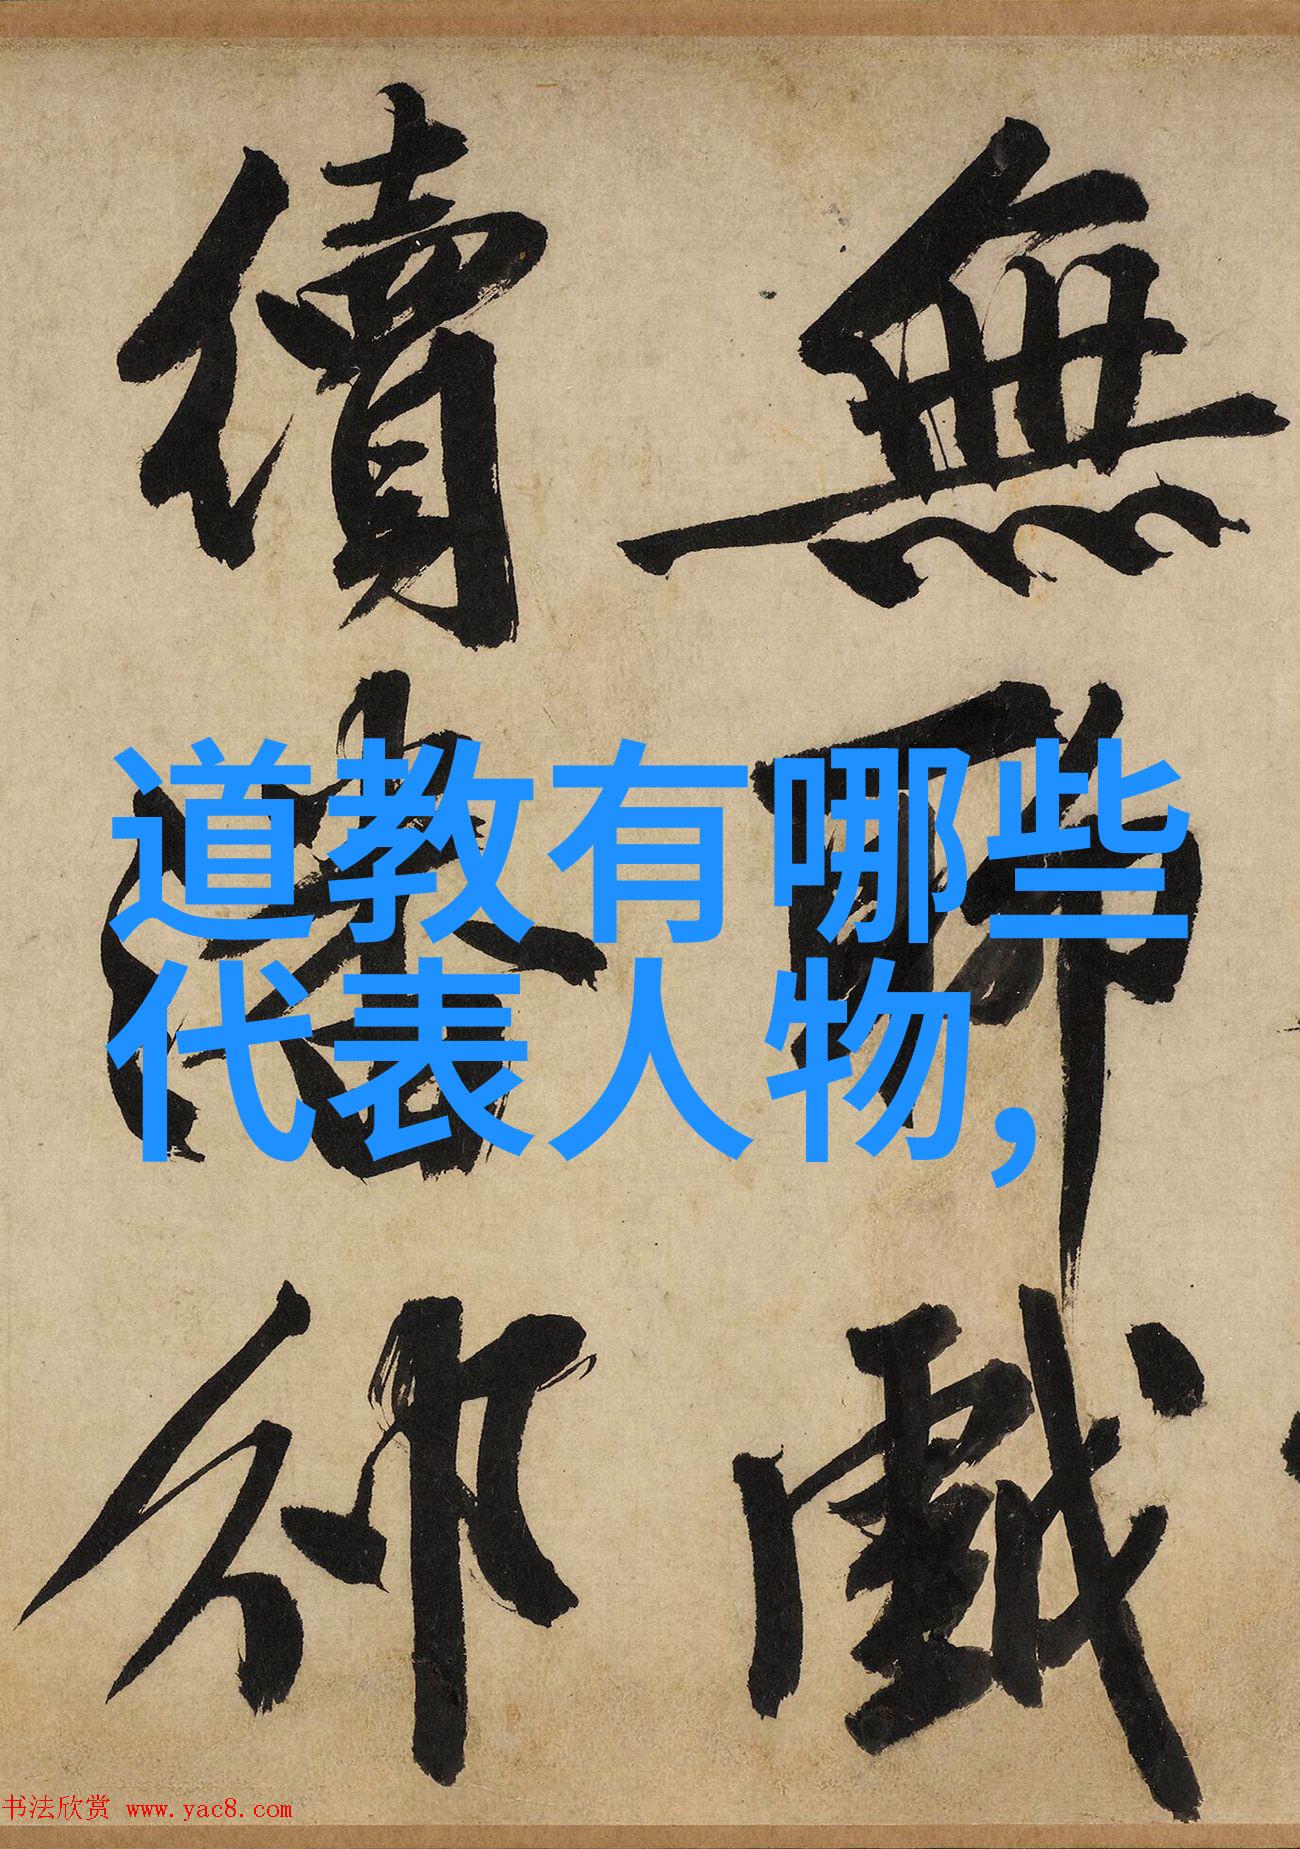 無聊戲
續潘邠
道教有哪些
代表人物,
书法欣赏 www.yac8.com